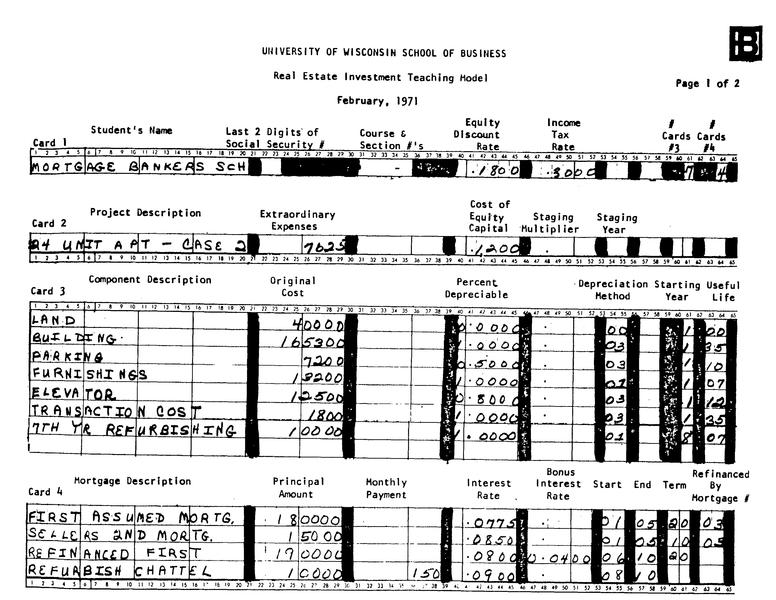 B
UNIVERSITY OF WISCONSIN SCHOOL OF BUSINESS
Real Estate Investment Teaching Model
Page 1 of 2
February, 1971
Student's Name Last 2 Digits of Course & Equity Income # #
Social Security # Section #'s Discount Tax Cards Cards
Card 1 Rate Rate #3 #4
MORTGAGE BANKERS SCH - .1800 .3000 7 4
Project Description Extraordinary Cost of Staging Staging
Card 2 Expenses Equity Capital Multiplier Year
24 UNIT APT - CASE 2 7625 .1200 .
Component Description Original Percent Depreciation Starting Useful
Card 3 Cost Depreciable Method Year Life
LAND 40000 0.0000 . 00 1 00
BUILDING 165300 1.0000 . 03 1 35
PARKING 7200 0.5000 . 03 1 10
FURNISHINGS 13200 1.0000 . 01 1 07
ELEVATOR 12500 0.8000 . 03 1 12
TRANSACTION COST 1800 1.0000 . 03 1 35
7TH YR REFURBISHING 10000 1.0000 . 01 8 07
Mortgage Description Principal Monthly Interest Bonus Interest Start End Term Refinanced By
Card 4 Amount Payment Rate Rate Mortgage #
FIRST ASSUMED MORTG. 180000 .0775 . 01 05 20 03
SELLERS 2ND MORTG. 15000 .0850 . 01 05 10 03
REFINANCED FIRST 190000 .0800 0.0400 06 10 20
REFURBISH CHATTEL 10000 150 .0900 . 08 10